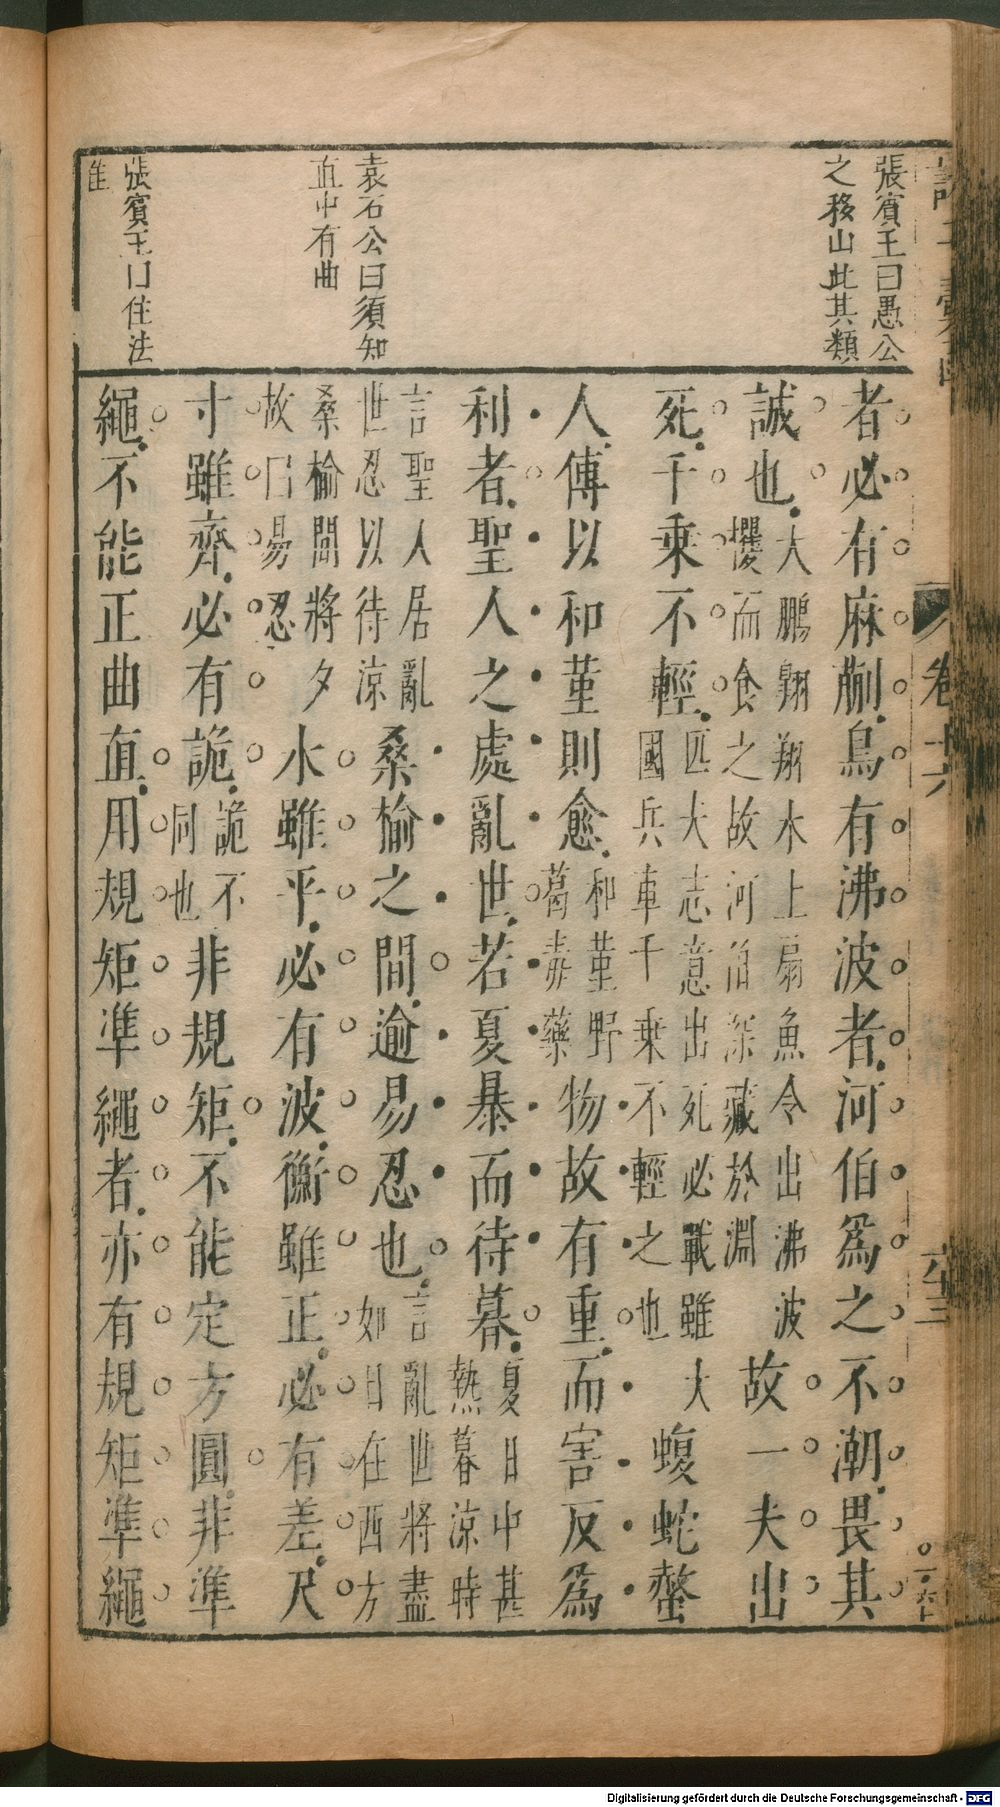 張賓王曰愚公
之移山此其類
袁石公曰須知
直中有曲
張賓王曰住法
隹
者必有麻蒯鳥有沸波者河伯爲之不潮畏其
誠也大鵬翱翔水上扇魚令出沸波攫而食之故河伯深藏於淵故一夫出
死千乘不輕匹夫志意出死必戰雖大國兵車千乘不輕之也蝮蛇螫
人傅以和堇則愈和堇野葛毒藥物故有重而害反爲
利者聖人之處亂世若夏暴而待暮夏日中甚熱暮涼時
言聖人居亂世忍以待涼桑榆之間逾易忍也言亂世將盡如日在西方
桑榆間將夕故曰易忍水雖平必有波衡雖正必有差尺
寸雖齊必有詭詭不同也非規矩不能定方圓非準
繩不能正曲直用規矩準繩者亦有規矩準繩
卷十六
六十三
Digitalisierung gefördert durch die Deutsche Forschungsgemeinschaft - DFG